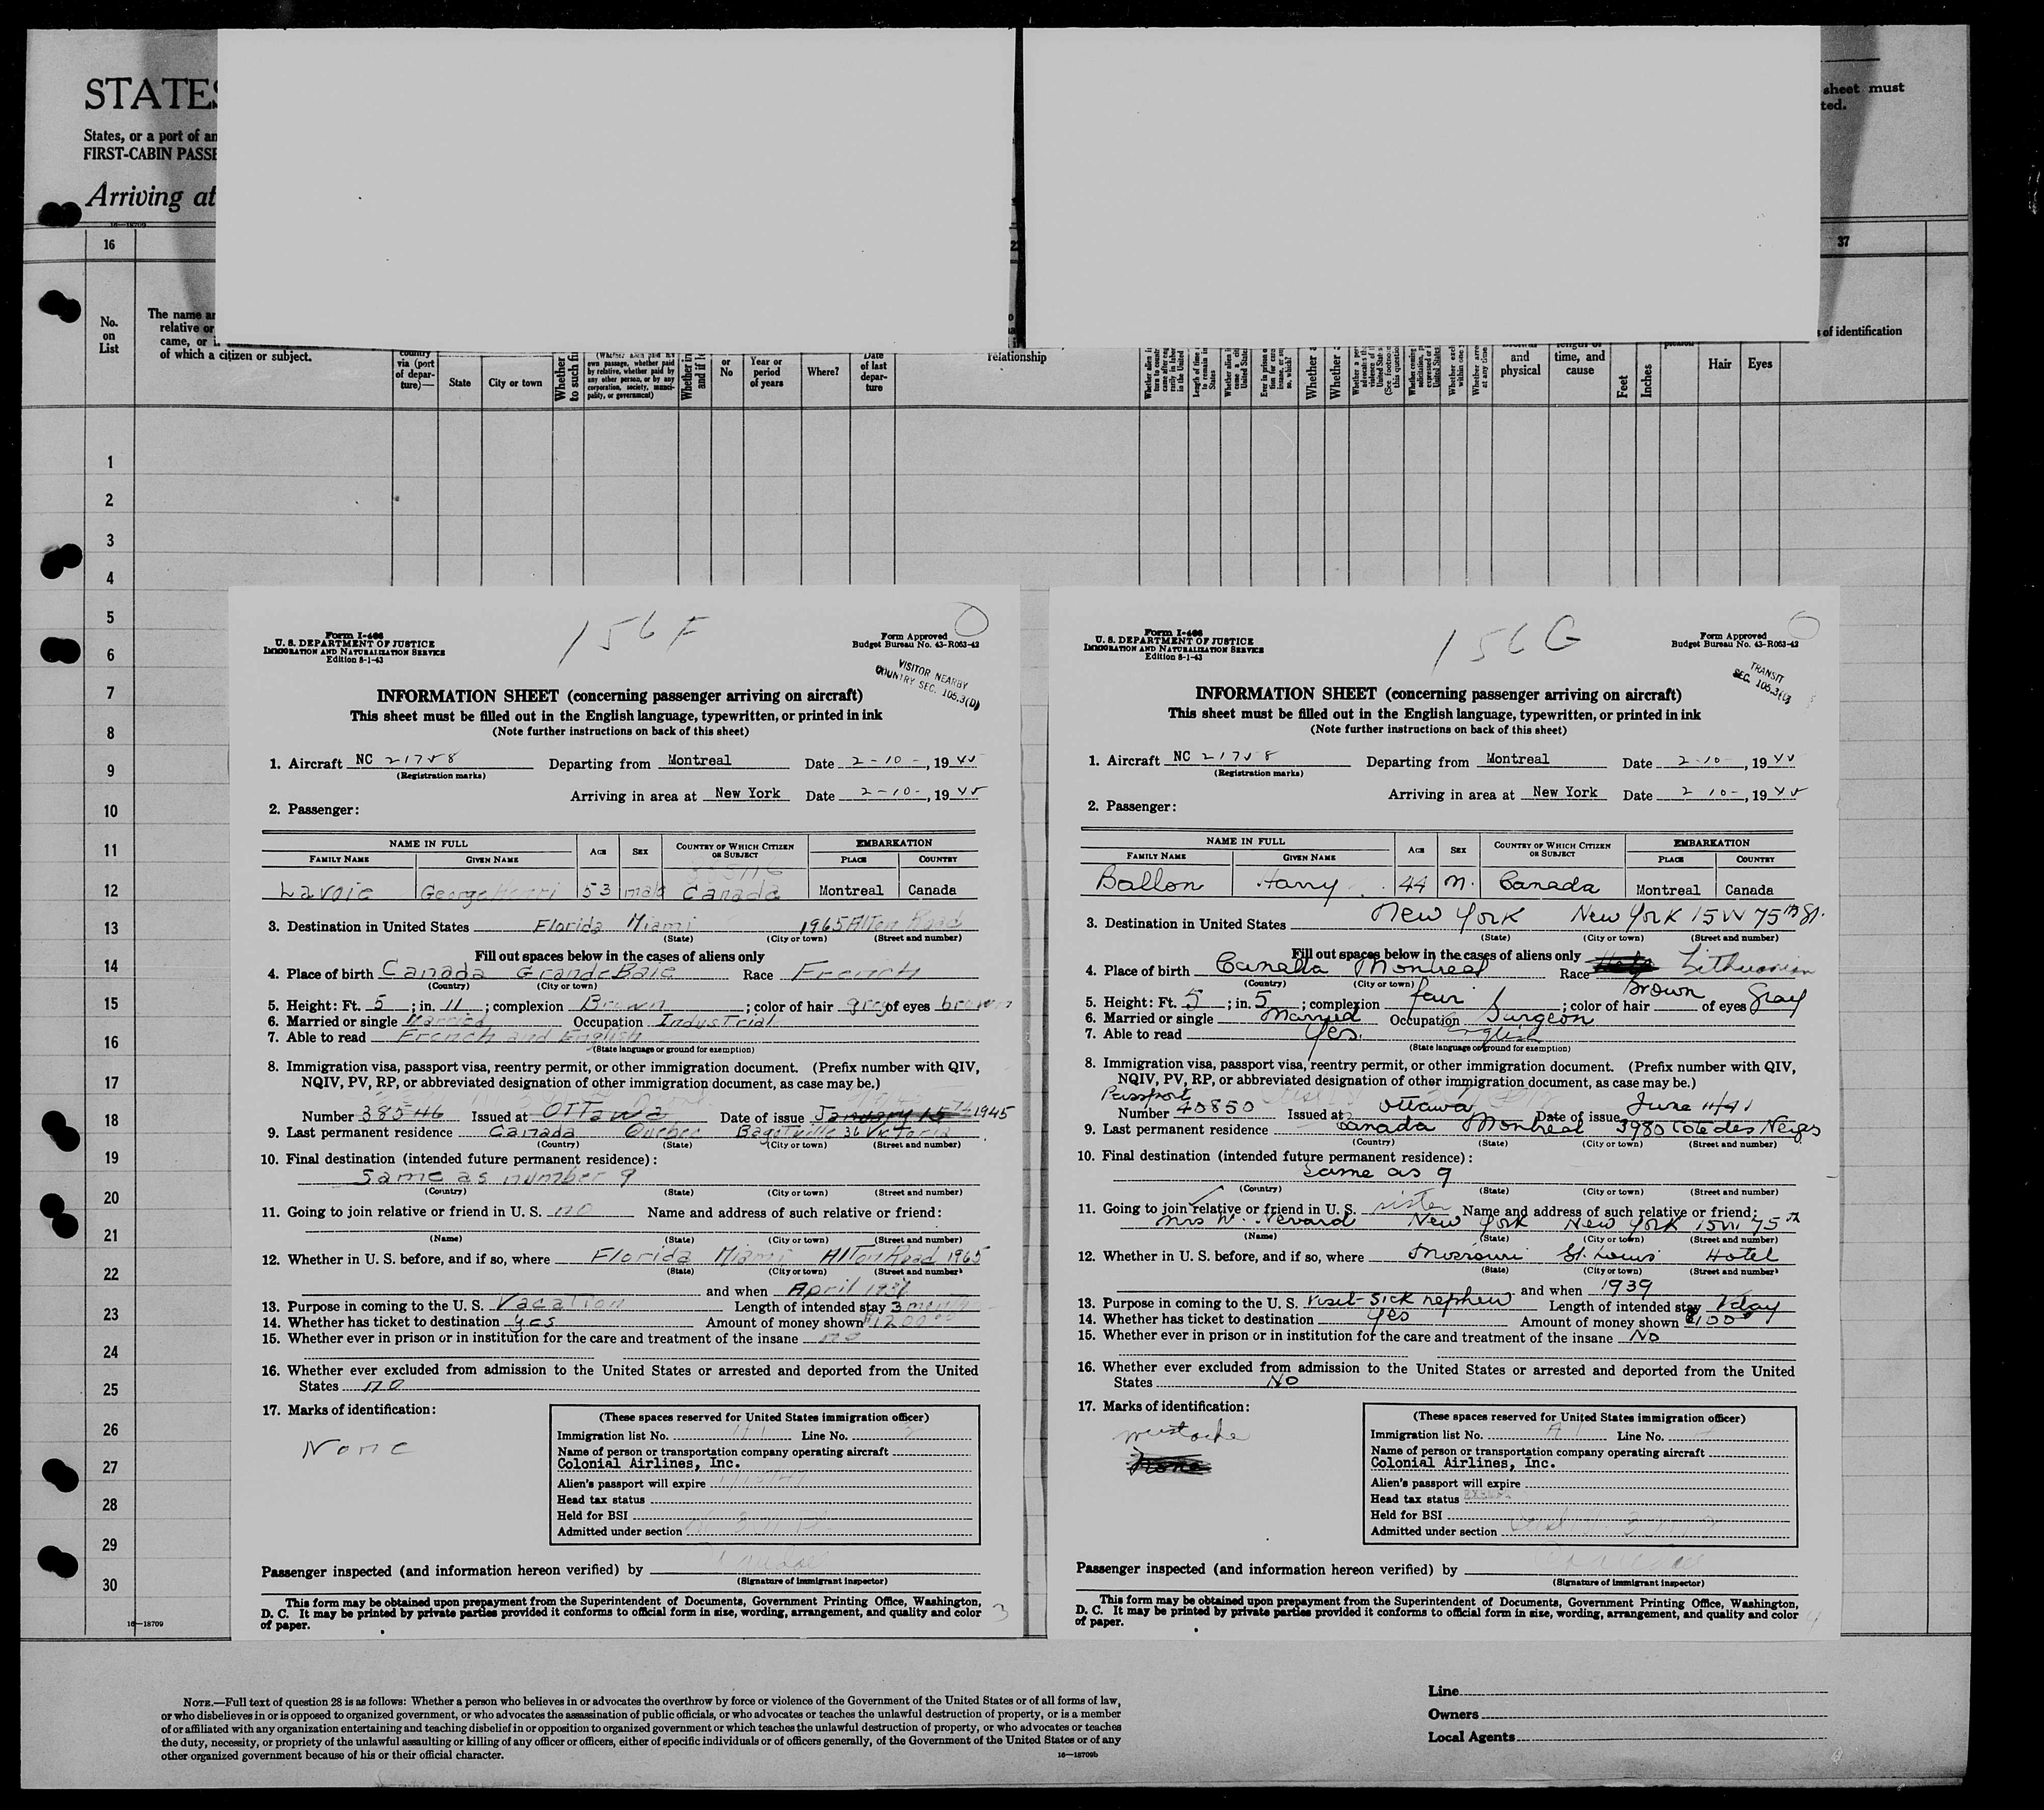 STATES
States, or a port of an
FIRST-CABIN PASSE
Arriving at
sheet must
ted.
16—18709
16
37
No.
on
List
The name an
relative or
came, or i
of which a citizen or subject.
country
via (port
of depar-
ture)—
State
City or town
Whether
to such fi
(Whether alien paid his
own passage, whether paid
by relative, whether paid by
any other person, or by any
corporation, society, munici-
pality, or government)
or
No
Year or
period
of years
Where?
Date
of last
depar-
ture
relationship
and
physical
length of
time, and
cause
Feet
Inches
Hair
Eyes
s of identification
1
2
3
4
5
6
7
8
9
10
11
12
13
14
15
16
17
18
19
20
21
22
23
24
25
26
27
28
29
30
16—18709
156 F
Form I-466
U. S. DEPARTMENT OF JUSTICE
IMMIGRATION AND NATURALIZATION SERVICE
Edition 8-1-43
Form Approved
Budget Bureau No. 43-R063-42
VISITOR NEARBY
COUNTRY SEC. 105.3(D)
INFORMATION SHEET (concerning passenger arriving on aircraft)
This sheet must be filled out in the English language, typewritten, or printed in ink
(Note further instructions on back of this sheet)
1. Aircraft NC 21758 Departing from Montreal Date 2-10-, 1945
(Registration marks)
Arriving in area at New York Date 2-10-, 1945
2. Passenger:
NAME IN FULL AGE SEX COUNTRY OF WHICH CITIZEN OR SUBJECT EMBARKATION
FAMILY NAME GIVEN NAME PLACE COUNTRY
Lavoie George Henri 53 male Canada Montreal Canada
3. Destination in United States Florida Miami 1965 Alton Road
(State) (City or town) (Street and number)
Fill out spaces below in the cases of aliens only
4. Place of birth Canada Grande Baie Race French
(Country) (City or town)
5. Height: Ft. 5; in. 11; complexion Brown; color of hair grey of eyes brown
6. Married or single Married Occupation Industrial
7. Able to read French and English
(State language or ground for exemption)
8. Immigration visa, passport visa, reentry permit, or other immigration document. (Prefix number with QIV,
NQIV, PV, RP, or abbreviated designation of other immigration document, as case may be.)
Number 38546 Issued at Ottawa Date of issue January 15 1945
9. Last permanent residence Canada Quebec Bagotville 36 Victoria
(Country) (State) (City or town) (Street and number)
10. Final destination (intended future permanent residence):
Same as number 9
(Country) (State) (City or town) (Street and number)
11. Going to join relative or friend in U. S. no Name and address of such relative or friend:
(Name) (State) (City or town) (Street and number)
12. Whether in U. S. before, and if so, where Florida Miami Alton Road 1965
(State) (City or town) (Street and number)
and when April 1937
13. Purpose in coming to the U. S. Vacation Length of intended stay 3 month
14. Whether has ticket to destination yes Amount of money shown $1200.00
15. Whether ever in prison or in institution for the care and treatment of the insane no
16. Whether ever excluded from admission to the United States or arrested and deported from the United
States no
17. Marks of identification:
None
(These spaces reserved for United States immigration officer)
Immigration list No. Line No.
Name of person or transportation company operating aircraft
Colonial Airlines, Inc.
Alien's passport will expire
Head tax status
Held for BSI
Admitted under section
Passenger inspected (and information hereon verified) by
(Signature of immigrant inspector)
This form may be obtained upon prepayment from the Superintendent of Documents, Government Printing Office, Washington,
D. C. It may be printed by private parties provided it conforms to official form in size, wording, arrangement, and quality and color
of paper.
3
156 G
Form I-466
U. S. DEPARTMENT OF JUSTICE
IMMIGRATION AND NATURALIZATION SERVICE
Edition 8-1-43
Form Approved
Budget Bureau No. 43-R063-42
TRANSIT
SEC. 105.3
INFORMATION SHEET (concerning passenger arriving on aircraft)
This sheet must be filled out in the English language, typewritten, or printed in ink
(Note further instructions on back of this sheet)
1. Aircraft NC 21758 Departing from Montreal Date 2-10-, 1945
(Registration marks)
Arriving in area at New York Date 2-10-, 1945
2. Passenger:
NAME IN FULL AGE SEX COUNTRY OF WHICH CITIZEN OR SUBJECT EMBARKATION
FAMILY NAME GIVEN NAME PLACE COUNTRY
Ballon Harry 44 M. Canada Montreal Canada
3. Destination in United States New York New York 15 W 75th St.
(State) (City or town) (Street and number)
Fill out spaces below in the cases of aliens only
4. Place of birth Canada Montreal Race Lithuanian
(Country) (City or town)
5. Height: Ft. 5; in. 5; complexion fair; color of hair Brown of eyes Gray
6. Married or single Married Occupation Surgeon
7. Able to read Yes. English
(State language or ground for exemption)
8. Immigration visa, passport visa, reentry permit, or other immigration document. (Prefix number with QIV,
NQIV, PV, RP, or abbreviated designation of other immigration document, as case may be.)
Passport
Number 40850 Issued at Ottawa Date of issue June 11/41
9. Last permanent residence Canada Montreal 3980 Cote des Neiges
(Country) (State) (City or town) (Street and number)
10. Final destination (intended future permanent residence):
Same as 9
(Country) (State) (City or town) (Street and number)
11. Going to join relative or friend in U. S. sister Name and address of such relative or friend:
Mrs W. Nevard New York New York 15 W 75th
(Name) (State) (City or town) (Street and number)
12. Whether in U. S. before, and if so, where Missouri St. Louis Hotel
(State) (City or town) (Street and number)
and when 1939
13. Purpose in coming to the U. S. visit-sick nephew Length of intended stay 1 day
14. Whether has ticket to destination yes Amount of money shown $100
15. Whether ever in prison or in institution for the care and treatment of the insane No
16. Whether ever excluded from admission to the United States or arrested and deported from the United
States No
17. Marks of identification:
mustache
None
(These spaces reserved for United States immigration officer)
Immigration list No. Line No.
Name of person or transportation company operating aircraft
Colonial Airlines, Inc.
Alien's passport will expire
Head tax status
Held for BSI
Admitted under section
Passenger inspected (and information hereon verified) by
(Signature of immigrant inspector)
This form may be obtained upon prepayment from the Superintendent of Documents, Government Printing Office, Washington,
D. C. It may be printed by private parties provided it conforms to official form in size, wording, arrangement, and quality and color
of paper.
4
NOTE.—Full text of question 28 is as follows: Whether a person who believes in or advocates the overthrow by force or violence of the Government of the United States or of all forms of law,
or who disbelieves in or is opposed to organized government, or who advocates the assassination of public officials, or who advocates or teaches the unlawful destruction of property, or is a member
of or affiliated with any organization entertaining and teaching disbelief in or opposition to organized government or which teaches the unlawful destruction of property, or who advocates or teaches
the duty, necessity, or propriety of the unlawful assaulting or killing of any officer or officers, either of specific individuals or of officers generally, of the Government of the United States or of any
other organized government because of his or their official character.
16—18709b
Line
Owners
Local Agents